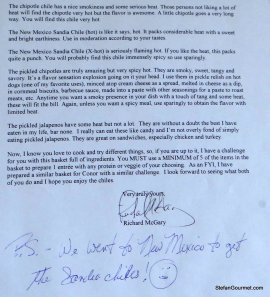 The chipotle chile has a nice smokiness and some serious heat. Those persons not liking a lot of
heat will find the chipotle very hot but the flavor is awesome. A little chipotle goes a very long
way. You will find this chile very hot.
The New Mexico Sandia Chile (hot) is like it says, hot. It packs considerable heat with a sweet
and bright earthiness. Use in moderation according to your tastes.
The New Mexico Sandia Chile (X-hot) is seriously flaming hot. If you like the heat, this packs
quite a punch. You will probably find this chile immensely spicy so use sparingly.
The pickled chipotles are truly amusing but very spicy hot. They are smoky, sweet, tangy and
savory. It's a flavor sensation explosion going on in your head. I use them in pickle relish on hot
dogs (one of my favorite uses), minced atop cream cheese as a spread, melded in cheese as a dip,
in compound butter, barbecue sauce, made into a paste with other seasonings for a paste to roast
meats, etc. Anytime you want a smoky presence to your dish with a touch of tang and some heat,
these will fit the bill. Again, unless you want a spicy meal, use sparingly to obtain the flavor with
limited heat.
The pickled jalapenos have some heat but not a lot. They are without a doubt the best I have
eaten in my life, bar none. I really can eat these like candy and I'm not overly fond of simply
eating pickled jalapenos. They are great on sandwiches, especially chicken and turkey.
Now, I know you love to cook and try different things, so, if you are up to it, I have a challenge
for you with this basket full of ingredients. You MUST use a MINIMUM of 5 of the items in the
basket to prepare 1 entrée with any protein or veggie of your choosing. As an FYI, I have
prepared a similar basket for Conor with a similar challenge. I look forward to seeing what both
of you do and I hope you enjoy the chiles.
Very truly yours,
Richard McGary
P.S. - We went to New Mexico to get
the Sandia chiles!
StefanGourmet.com